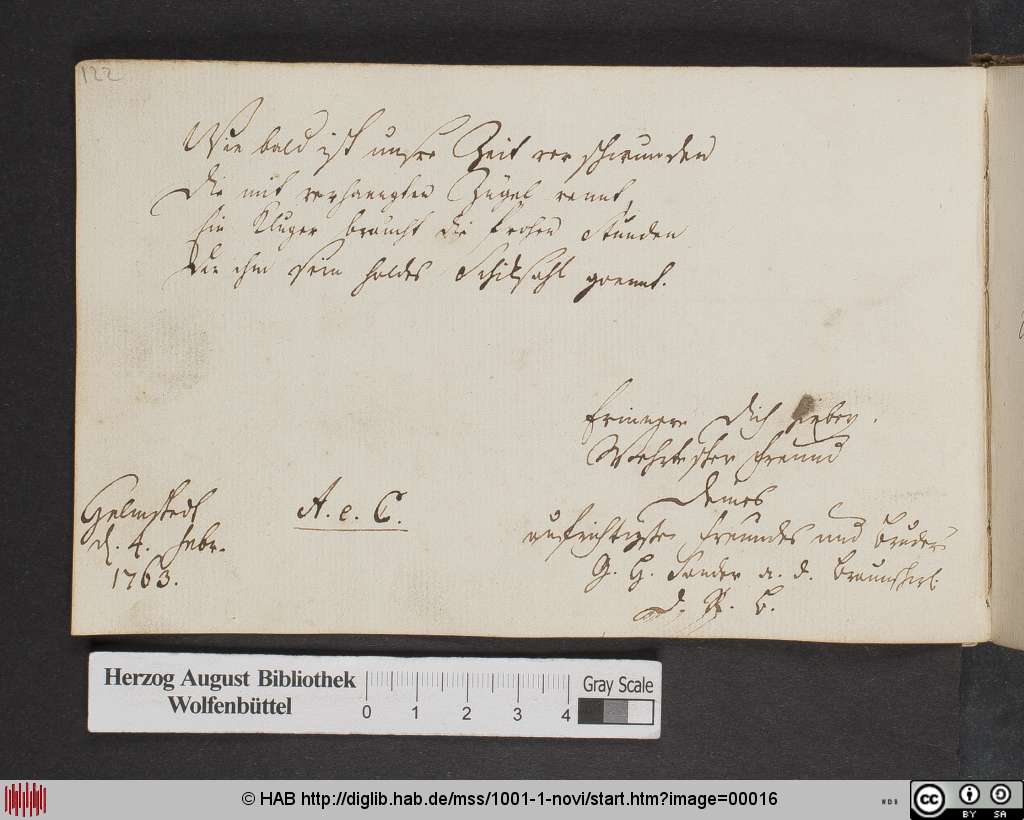 122
Wie bald ist unsre Zeit verschwunden
Die mit verhaengten Zügel rennt,
Ein Kluger braucht die frohen Stunden
Die ihm sein holdes Schiksahl goennt.
Erinnere Dich hiebey
Wehrtester Freund
Deines
aufrichtigsten Freundes und Bruders
G. H. Sander a. d. Braunschw.
D. R. B.
Helmstedt
d. 4. Febr.
1763.
A. e. C.
Herzog August Bibliothek
Wolfenbüttel
0 1 2 3 4
Gray Scale
© HAB http://diglib.hab.de/mss/1001-1-novi/start.htm?image=00016
CC BY SA